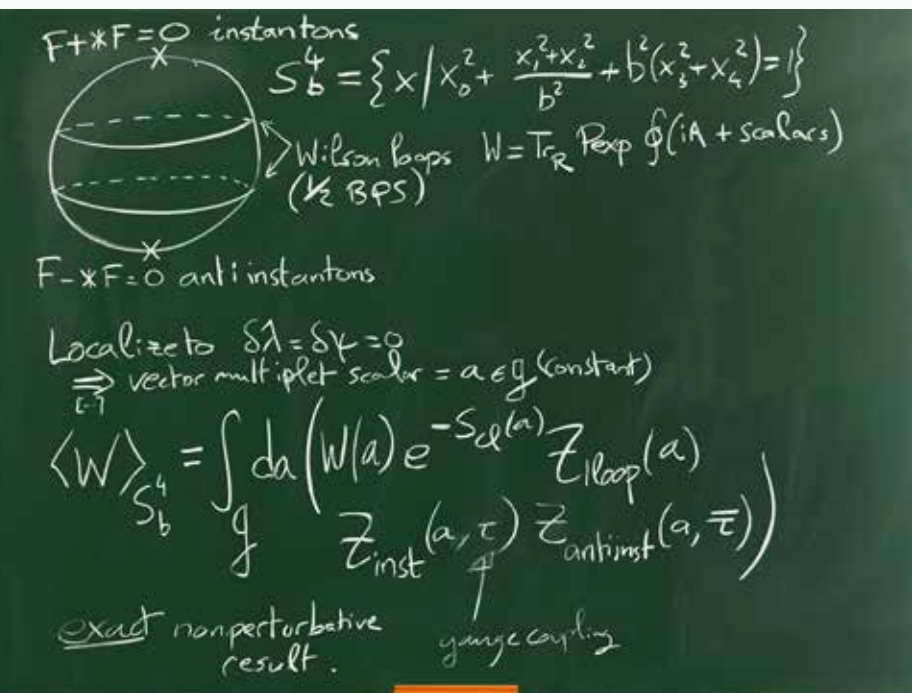 F+*F=0 instantons
S⁴_b = {x | x₀² + (x₁²+x₂²)/b² + b²(x₃²+x₄²) = 1}
Wilson loops W = Tr_R Pexp ∮(iA + scalars)
(½ BPS)
F-*F=0 anti instantons
Localize to δλ = δψ = 0
⟹ vector multiplet scalar = a ∈ g (constant)
[...]
⟨W⟩_{S⁴_b} = ∫_g da (W(a) e^{-S_cl(a)} Z_{1loop}(a)
Z_inst(a, τ) Z_antiinst(a, τ̄))
exact nonperturbative
result.
gauge coupling